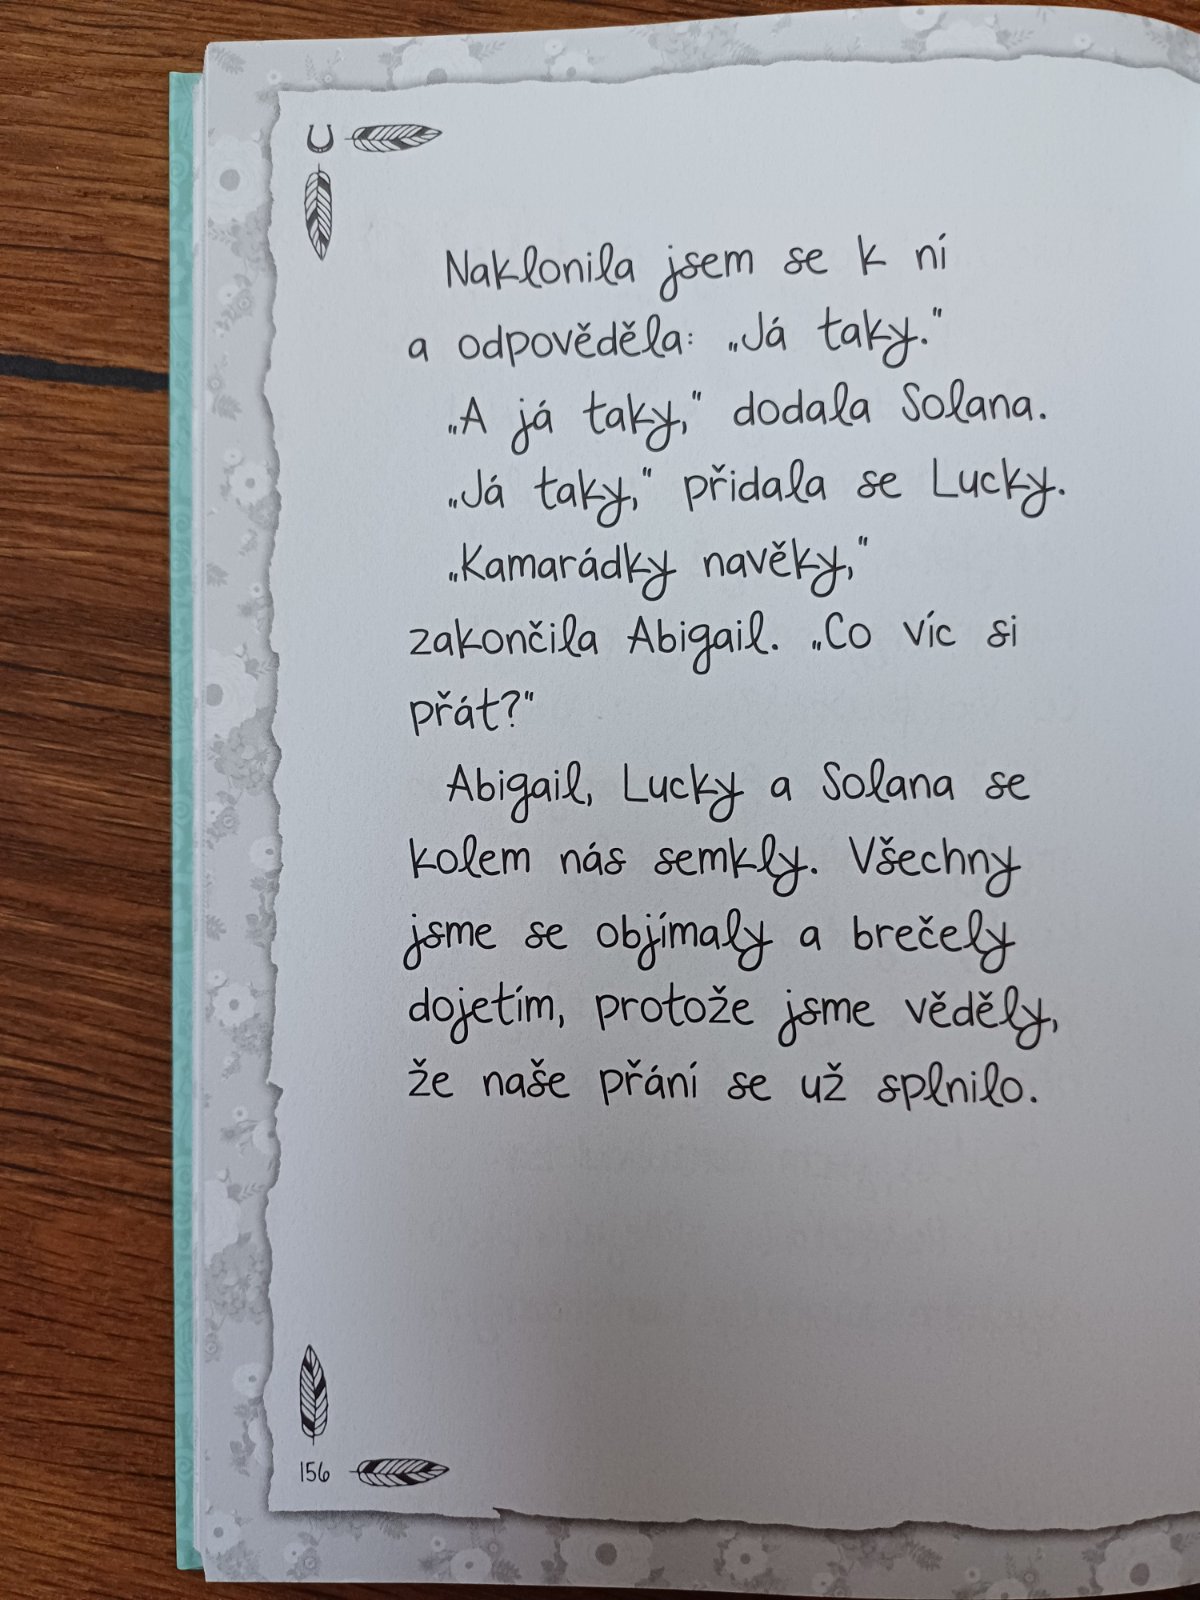 Naklonila jsem se k ní
a odpověděla: „Já taky."
„A já taky," dodala Solana.
„Já taky," přidala se Lucky.
„Kamarádky navěky,"
zakončila Abigail. „Co víc si
přát?"
Abigail, Lucky a Solana se
kolem nás semkly. Všechny
jsme se objímaly a brečely
dojetím, protože jsme věděly,
že naše přání se už splnilo.
156